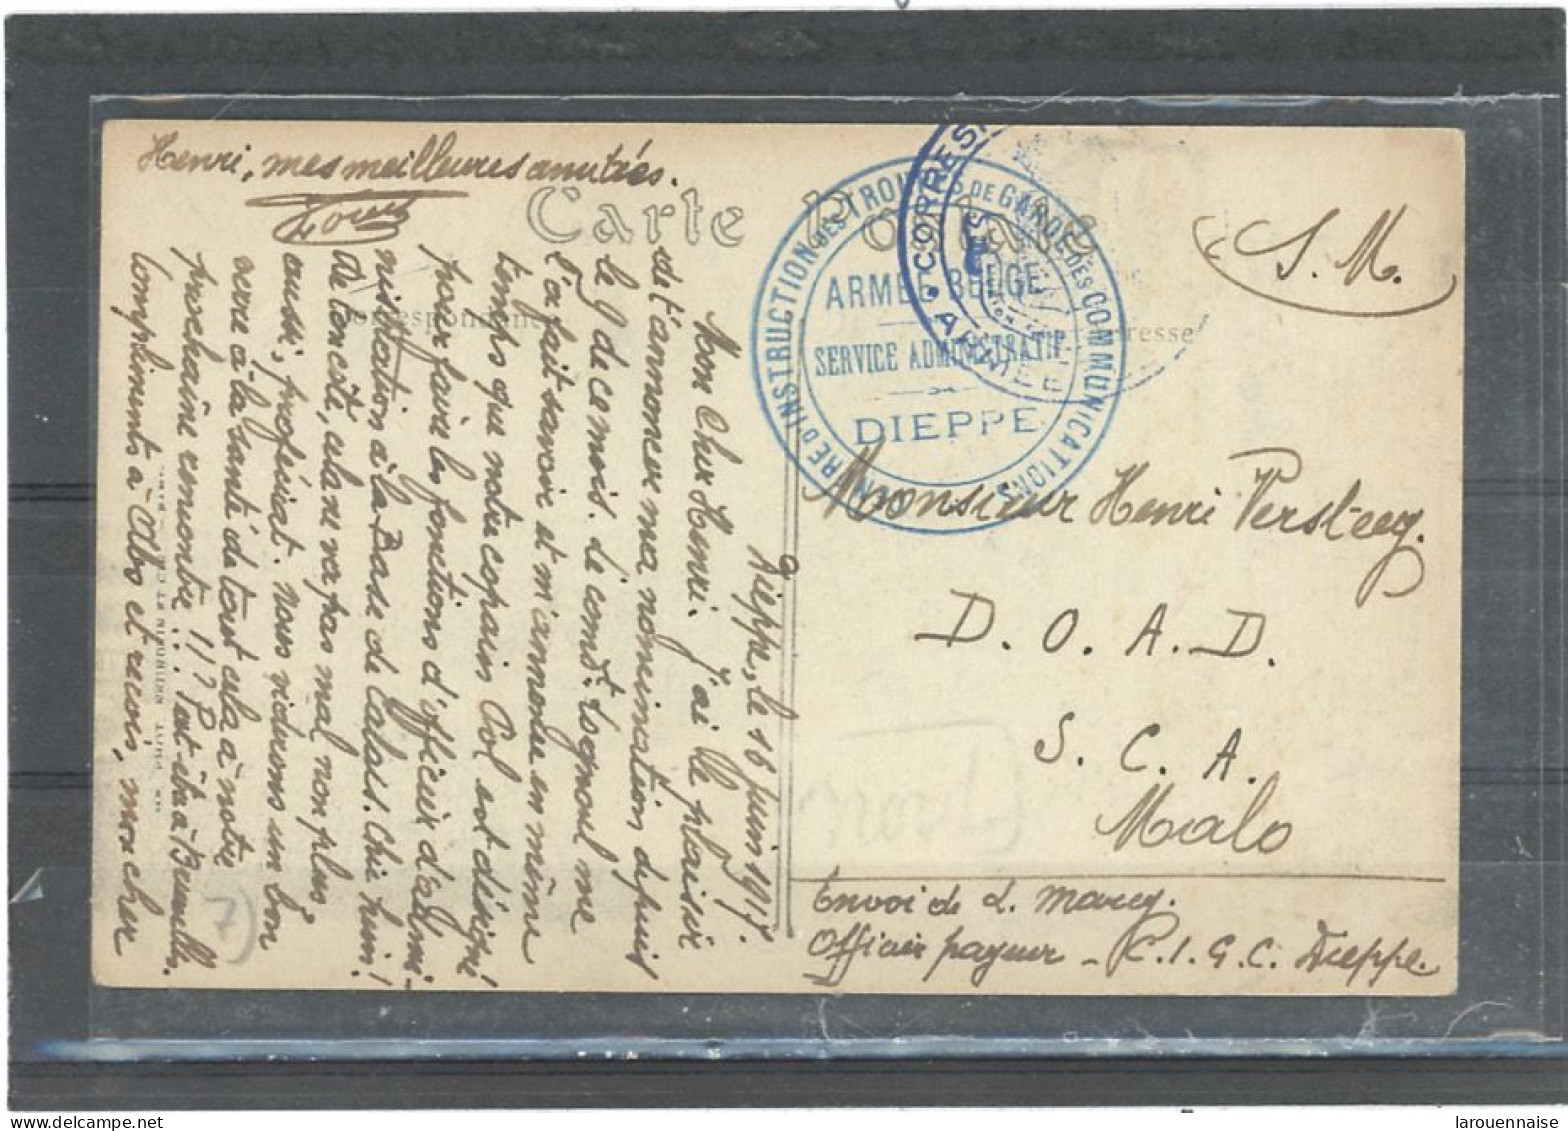 Henri, mes meilleures amitiés.
Carte Postale
S. M.
Correspondance
Adresse
CENTRE D'INSTRUCTION DES TROUPES DE GARDE DES COMMUNICATIONS
ARMÉE BELGE
SERVICE ADMINISTRATIF
DIEPPE
CORRESP
ARMÉE
Dieppe, le 16 juin 1917.
Mon cher Henri. J'ai le plaisir
de t'annoncer ma nomination depuis
le 9 de ce mois. Le comdt. me
l'a fait savoir et m'annonce en même
temps que notre copain Col est désigné
pour faire les fonctions d'officier d'admi-
nistration à la Base de Calais. Chic hein!
De ton côté, cela ne va pas mal non plus,
aussi, proficiat. Nous viderons un bon
verre à la santé de tout cela à notre
prochaine rencontre !!? P. Peut-être à Bruxelles.
Compliments à Abo et reçois, mon cher
Monsieur Henri Versteey.
D. O. A. D.
S. C. A.
Malo
Envoi de L. Marcy.
Officier payeur - C. I. G. C. Dieppe.
7)
larouennaise